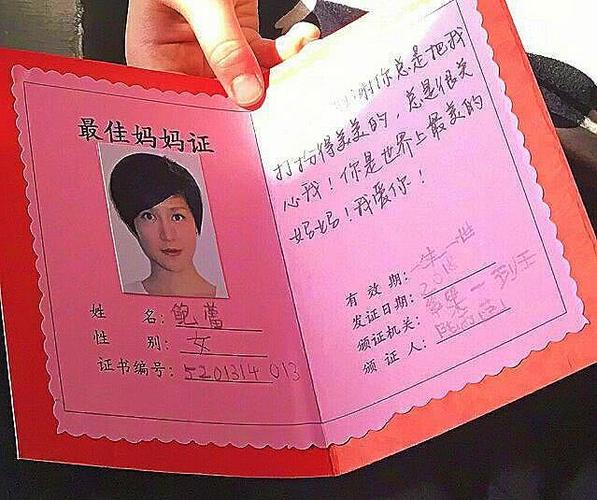 最佳妈妈证
姓 名：鲍蕾
性 别：女
证书编号：5201314 013
谢你总是把我
打扮得美美的，总是很关
心我！你是世界上最美的
妈妈！我爱你！
有 效 期：一生一世
发证日期：2018
颁证机关：
颁 证 人：